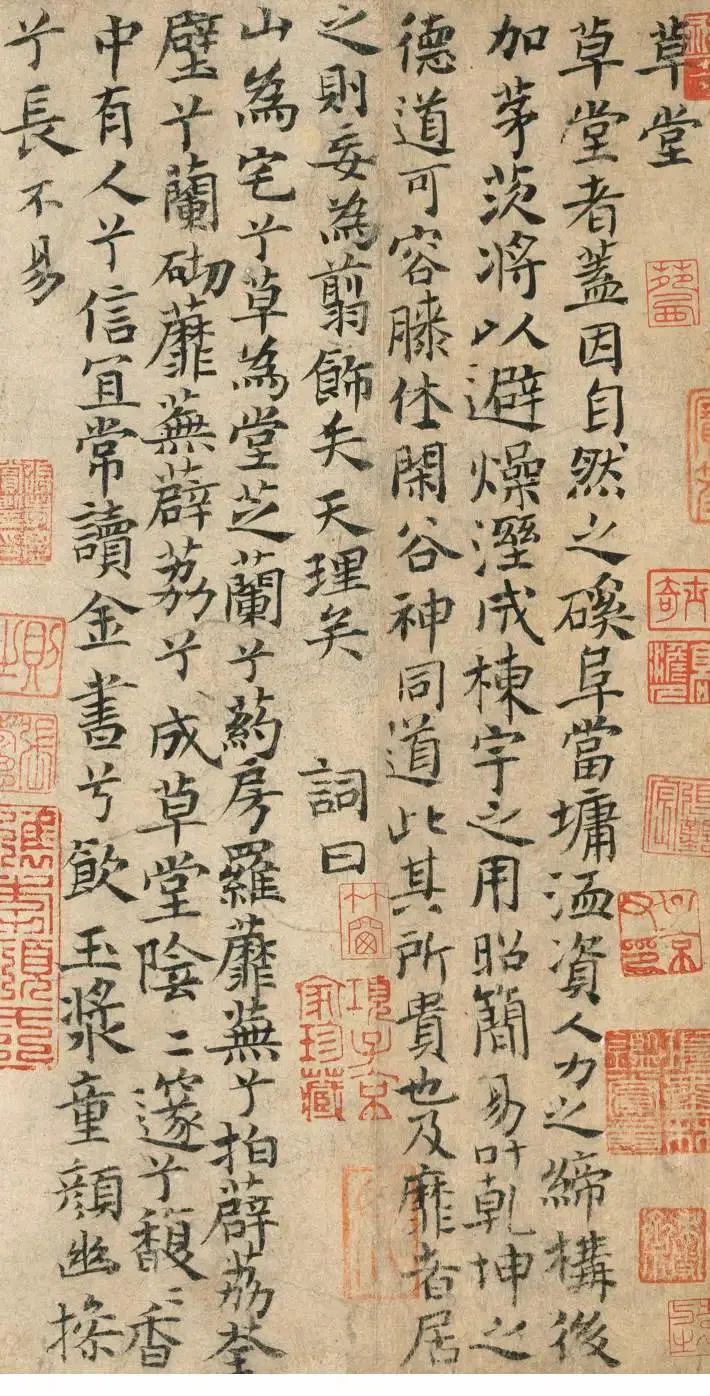 草堂
草堂者蓋因自然之磎阜當墉洫資人力之締構後
加茅茨將以避燥溼成棟宇之用昭簡易叶乾坤之
德道可容膝休閑谷神同道此其所貴也及靡者居
之則妄為剪飾失天理矣 詞曰
山為宅兮草為堂芝蘭兮葯房羅蘼蕪兮拍薜荔荃
壁兮蘭砌蘼蕪薜荔兮成草堂陰二邃兮馥二香
中有人兮信宜常讀金書兮飲玉漿童顏幽操
兮長不易
項子京
家珍藏